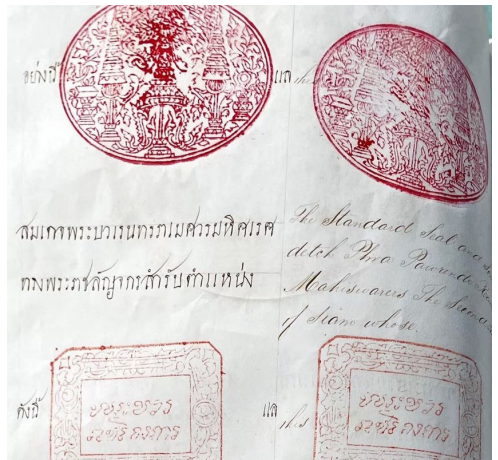 อย่างนี้ แล this
สมเดจพระบวเรนทราเมศวรมหิศเรศ
ทรงพระราชลัญจกรสำรับตำแหน่ง
The Standard Seal and
detch Phra Pawarende
Maheswares The Second
of Siam whose
ดังนี้ แล this